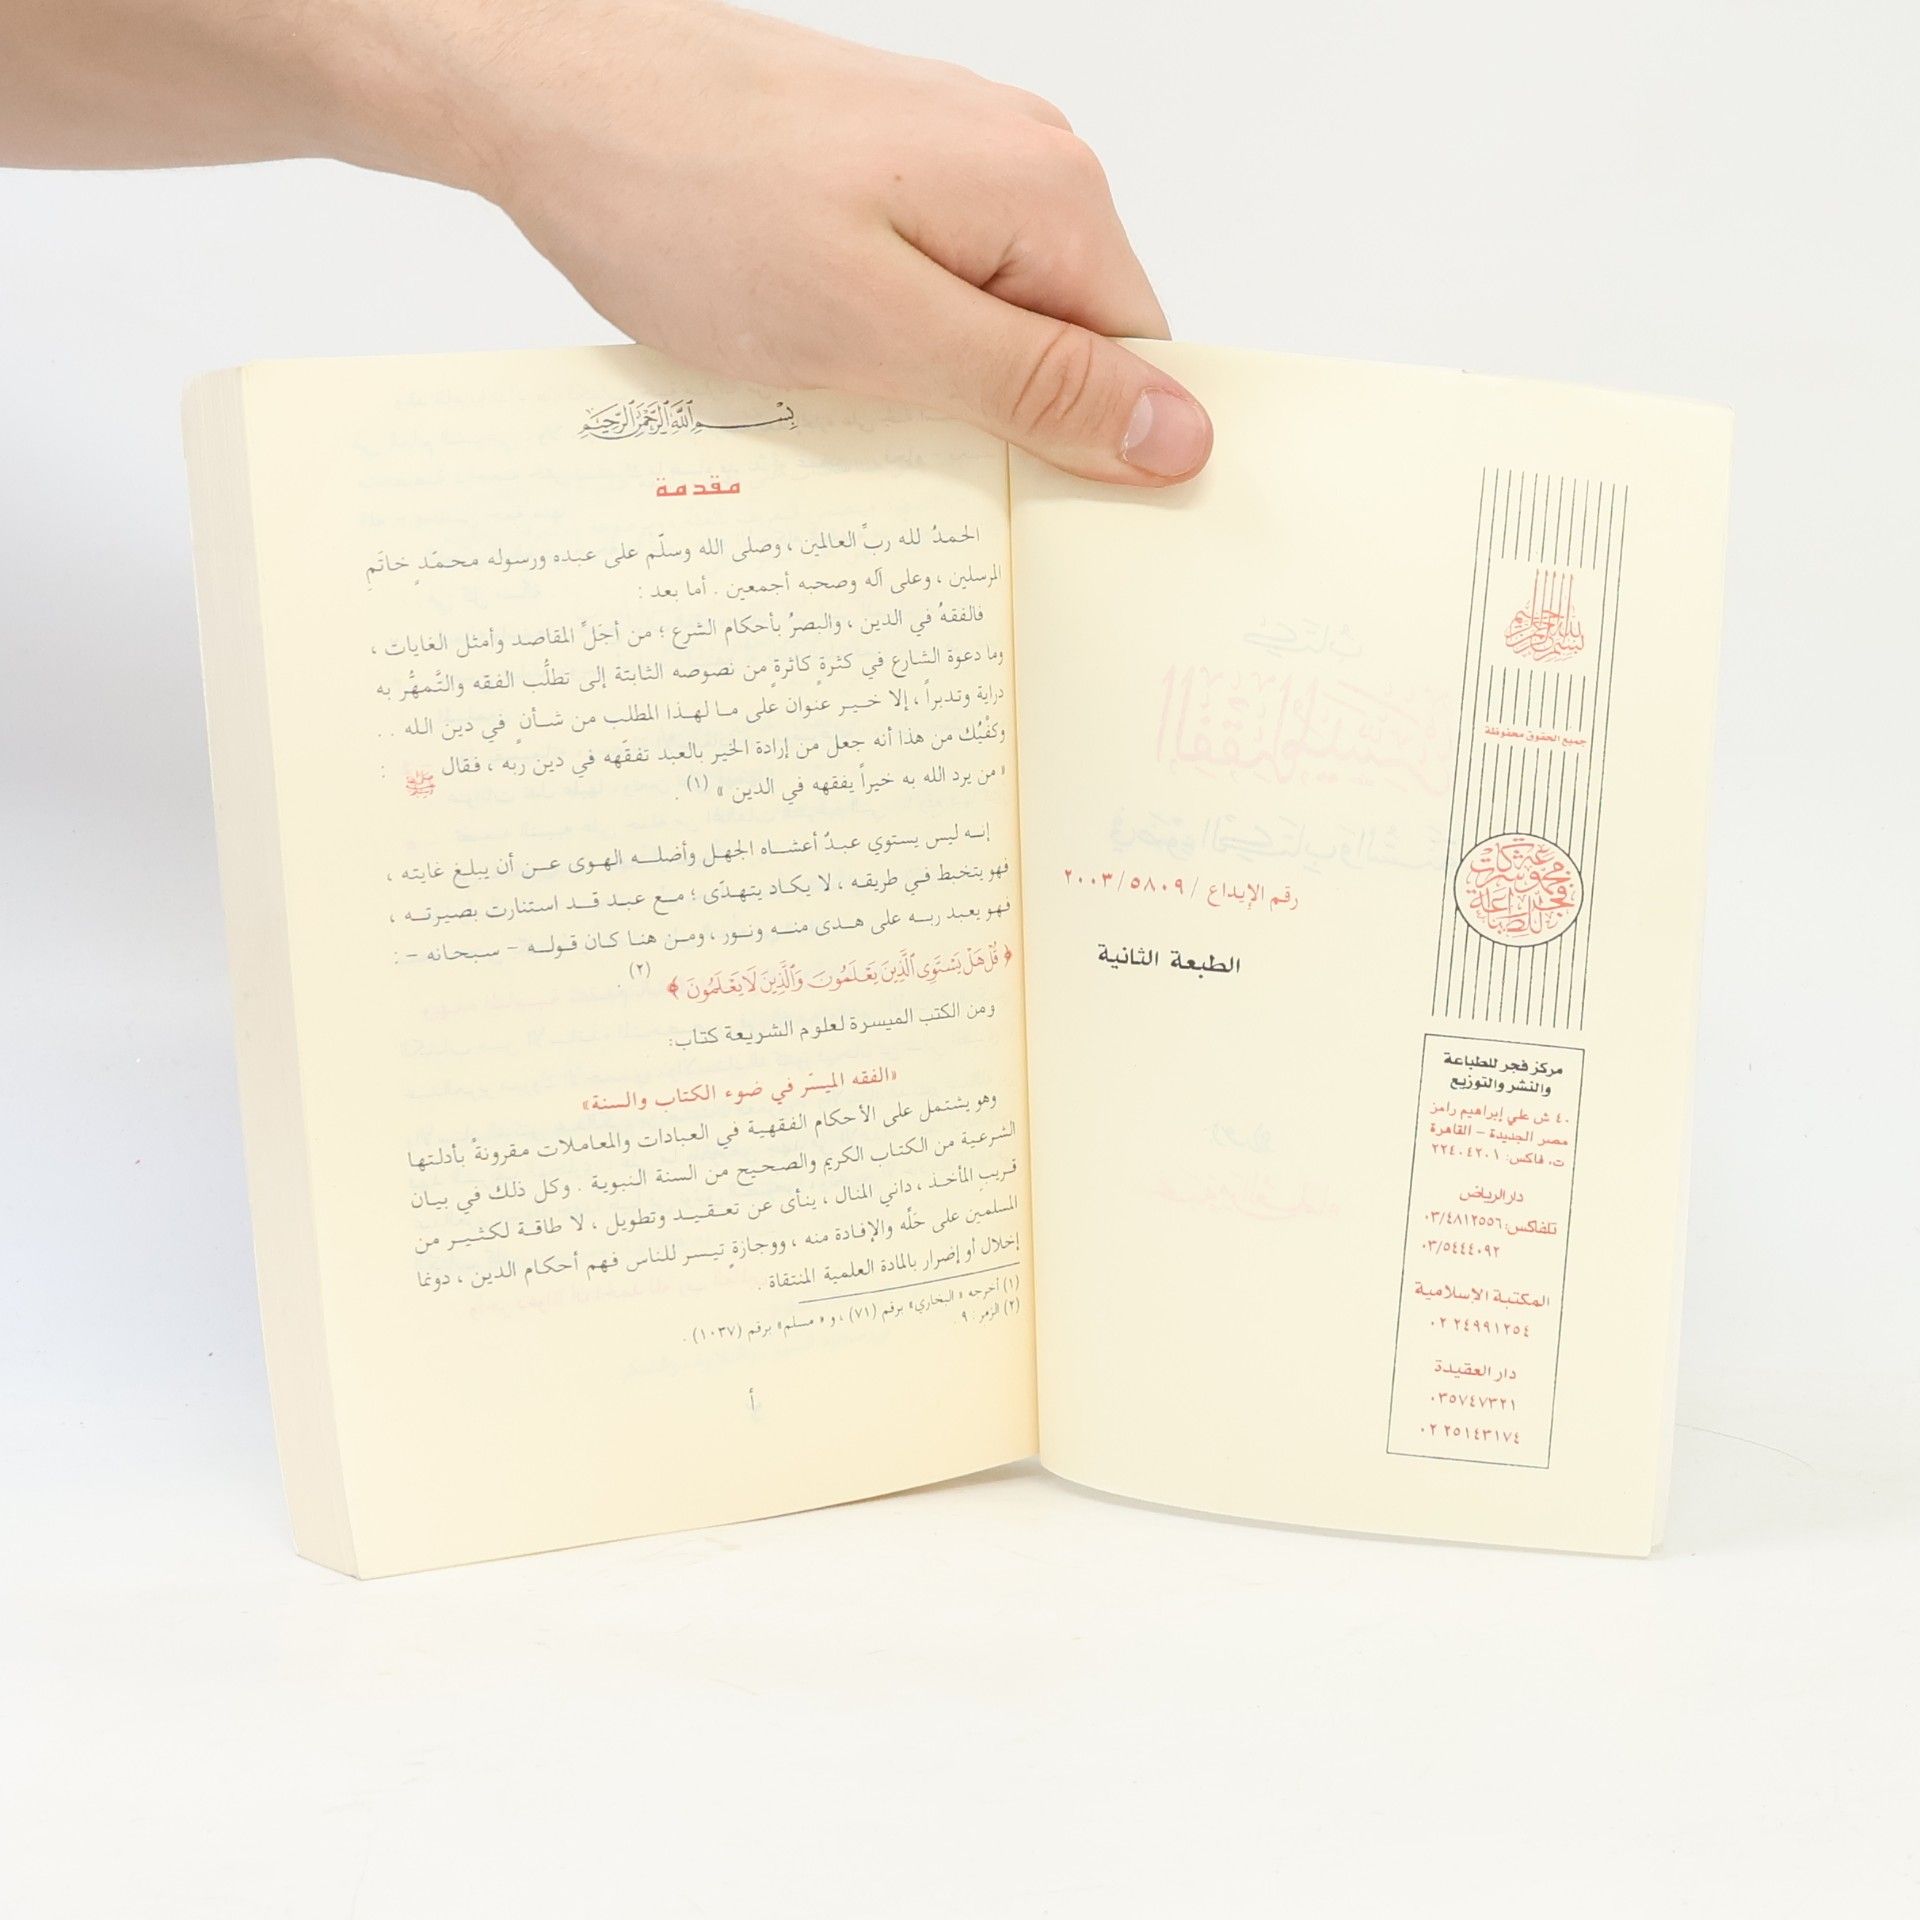 بسم الله الرحمن الرحيم
جميع الحقوق محفوظة
مجموعة شركات فجر للطباعة
رقم الإيداع / ٢٠٠٣/٥٨٠٩
الطبعة الثانية
مركز فجر للطباعة
والنشر والتوزيع
٤٠ ش علي إبراهيم رامز
مصر الجديدة - القاهرة
ت. فاكس: ٢٢٤٠٤٢٠١
دار الرياض
تلفاكس: ٠٣/٤٨١٢٥٥٦
٠٣/٥٤٤٤٠٩٢
المكتبة الإسلامية
٠٢ ٢٤٩٩١٢٥٤
دار العقيدة
٠٣٥٧٤٧٣٢١
٠٢ ٢٥١٤٣١٧٤
بِسْمِ ٱللَّهِ ٱلرَّحْمَٰنِ ٱلرَّحِيمِ
مقدمة
الحمدُ لله ربِّ العالمين ، وصلى الله وسلّم على عبده ورسوله محمّدٍ خاتَمِ
المرسلين ، وعلى آله وصحبه أجمعين . أما بعد :
فالفقهُ في الدين ، والبصرُ بأحكام الشرع ؛ من أجَلِّ المقاصد وأمثل الغايات ،
وما دعوة الشارع في كثرةٍ كاثرةٍ من نصوصه الثابتة إلى تطلُّب الفقه والتَّمهُّر به
دراية وتدبراً ، إلا خير عنوان على ما لهذا المطلب من شأنٍ في دين الله . .
وكفْيُك من هذا أنه جعل من إرادة الخير بالعبد تفقّهه في دين ربه ، فقال ﷺ :
« من يرد الله به خيراً يفقهه في الدين » (١) .
إنه ليس يستوي عبدٌ أعشاه الجهل وأضله الهوى عن أن يبلغ غايته ،
فهو يتخبط في طريقه ، لا يكاد يتهدّى ؛ مع عبد قد استنارت بصيرته ،
فهو يعبد ربه على هدى منه ونور ، ومن هنا كان قوله - سبحانه - :
﴿ قُلْ هَلْ يَسْتَوِي ٱلَّذِينَ يَعْلَمُونَ وَٱلَّذِينَ لَا يَعْلَمُونَ ﴾ (٢) .
ومن الكتب الميسرة لعلوم الشريعة كتاب:
«الفقه الميسّر في ضوء الكتاب والسنة»
وهو يشتمل على الأحكام الفقهية في العبادات والمعاملات مقرونةً بأدلتها
الشرعية من الكتاب الكريم والصحيح من السنة النبوية . وكل ذلك في بيان
قريبِ المأخذ ، داني المنال ، ينأى عن تعقيد وتطويل ، لا طاقة لكثير من
المسلمين على حَلّه والإفادة منه ، ووجازةٍ تيسر للناس فهم أحكام الدين ، دونما
إخلال أو إضرار بالمادة العلمية المنتقاة .
(١) أخرجه « البخاري» برقم (٧١) ، و « مسلم» برقم (١٠٣٧) .
(٢) الزمر : ٩ .
أ